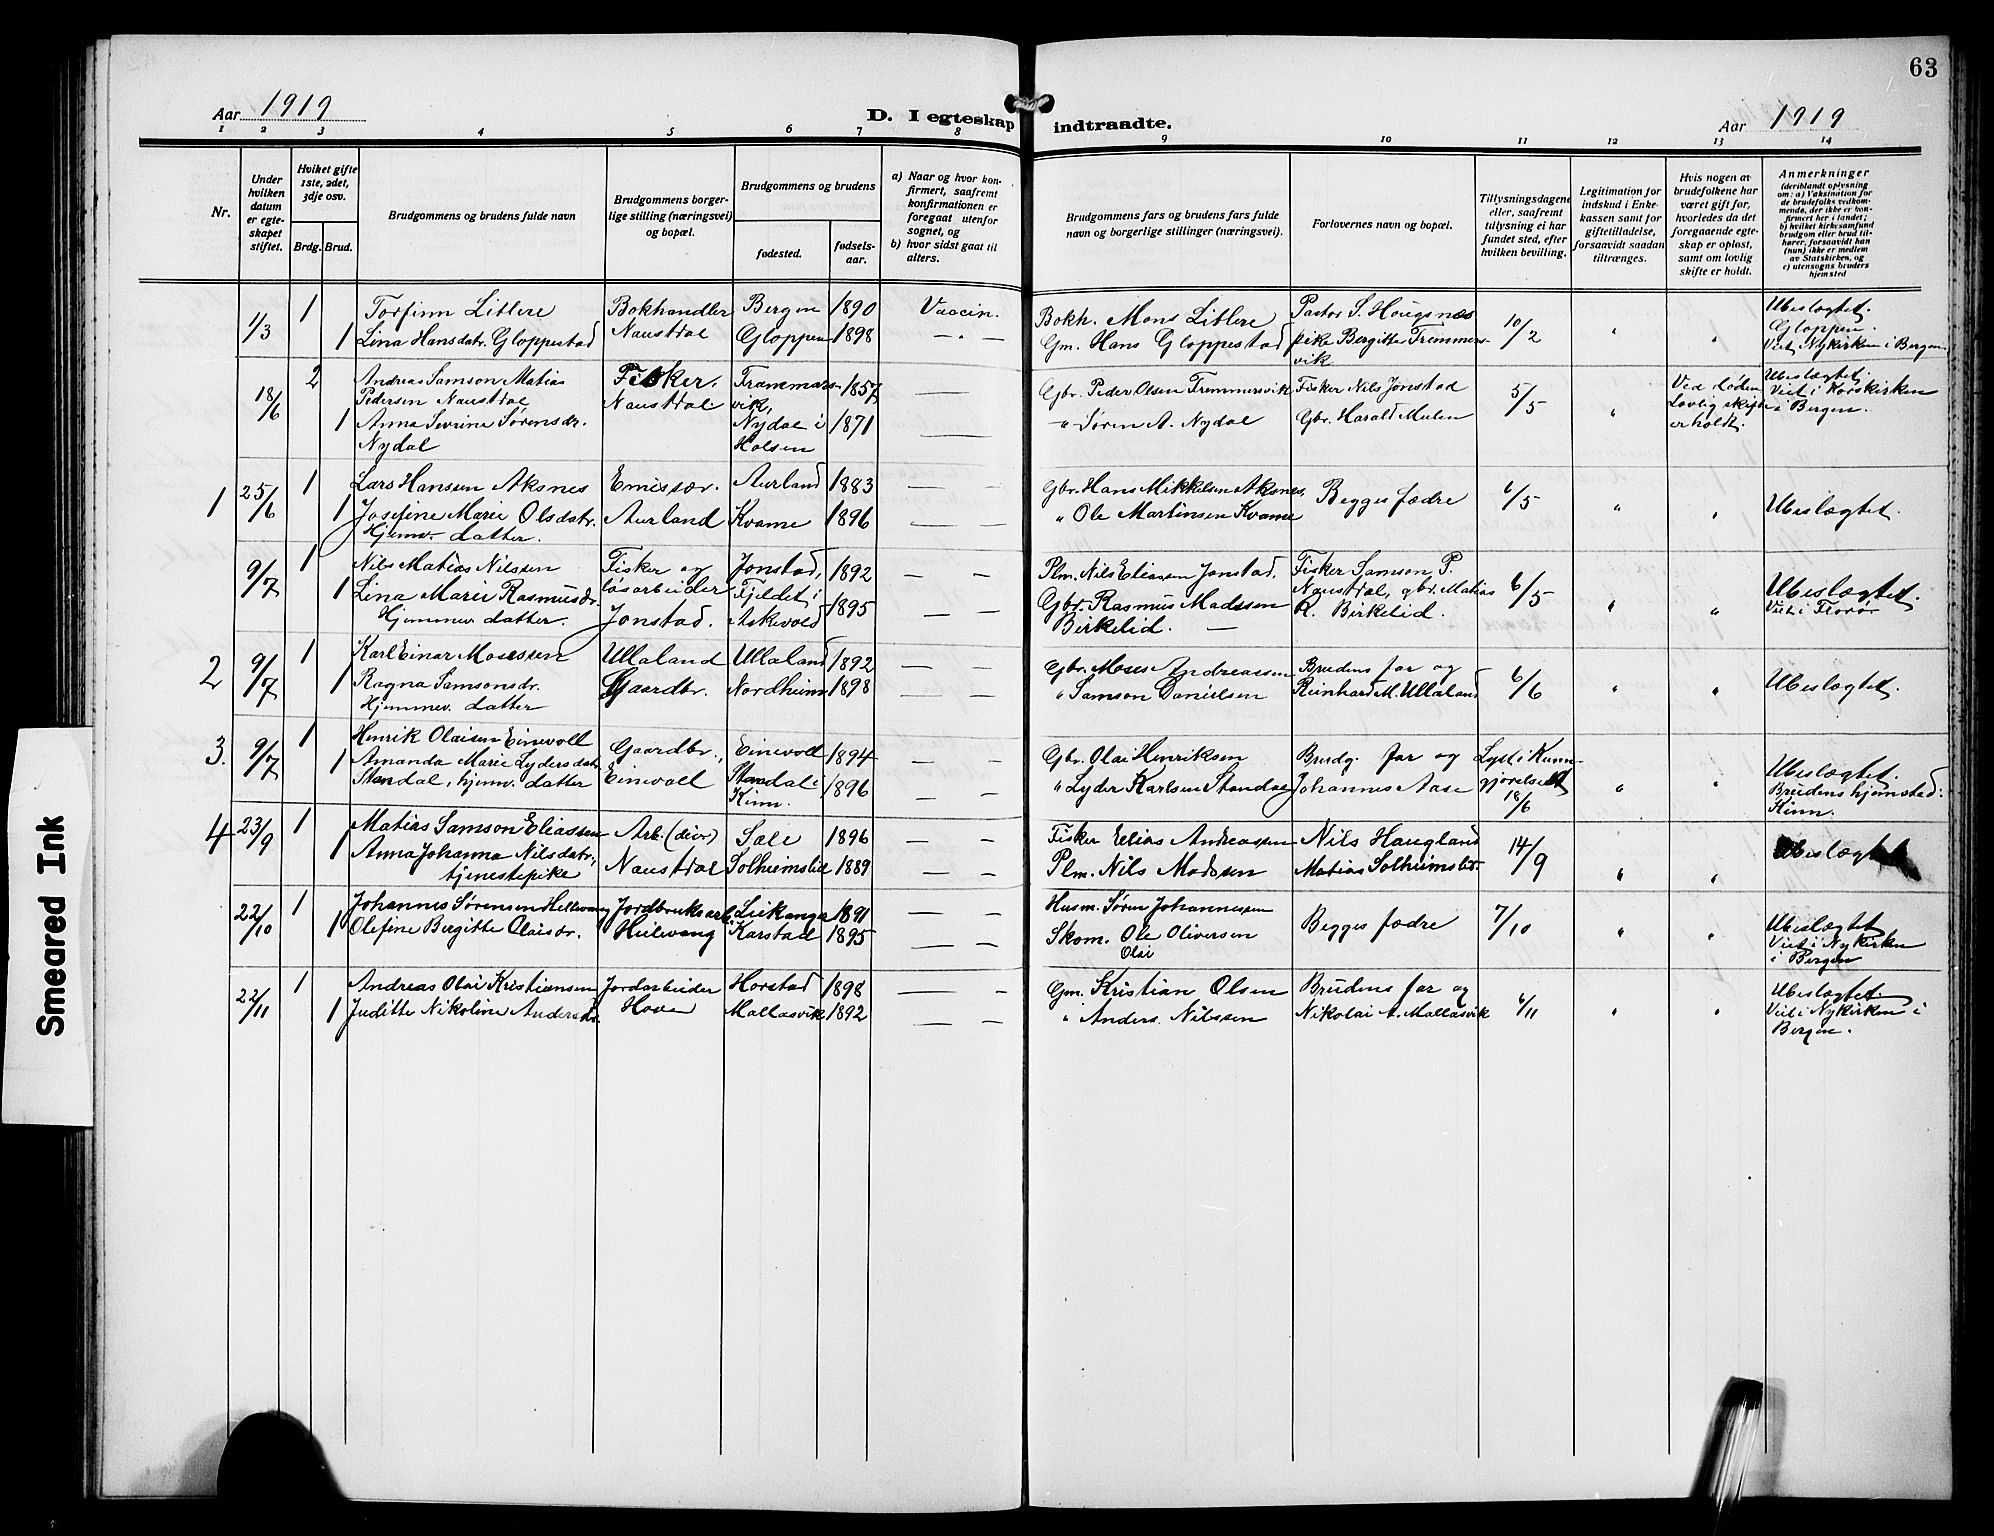 63
Aar 1919
D. I egteskap indtraadte.
Aar 1919
1 2 3 4 5 6 7 8 9 10 11 12 13 14
Nr.
Under hvilken datum er egteskapet stiftet.
Hvilket gifte 1ste, 2det, 3dje osv.
Brdg. Brud.
Brudgommens og brudens fulde navn
Brudgommens borgerlige stilling (næringsvei) og bopæl.
Brudgommens og brudens
fødested.
fødselsaar.
a) Naar og hvor konfirmert, saafremt konfirmationen er foregaat utenfor sognet, og
b) hvor sidst gaat til alters.
Brudgommens fars og brudens fars fulde navn og borgerlige stillinger (næringsvei).
Forlovernes navn og bopæl.
Tillysningsdagene eller, saafremt tillysning ei har fundet sted, efter hvilken bevilling.
Legitimation for indskud i Enkekassen samt for giftetilladelse, forsaavidt saadan tiltrænges.
Hvis nogen av brudefolkene har været gift før, hvorledes da det foregaaende egteskap er opløst, samt om lovlig skifte er holdt.
Anmerkninger
(deriblandt oplysning om: a) Vaksination for de brudefolks vedkommende, der ikke er konfirmert her i landet; b) hvilket kirkesamfund brudgom eller brud tilhører, forsaavidt han (hun) ikke er medlem av Statskirken, og c) utensogns bruders hjemsted
1/3 1 Torfinn Litlere Bokhandler Bergen 1890 Vaccin. Bokh. Mons Litlere Pastor S. Hougsnæs 10/2 " " Ubeslægtet.
1 Lina Hansdatr. Gloppestad Naustdal Gloppen 1898 — " — Gm. Hans Gloppestad pike Bergitte Fremmersvik Gloppen.
Viet Nykirken i Bergen
18/6 2 Andreas Samson Matias Pedersen Naustdal Fisker. Naustdal Frammarsvik, 1857 — Gbr. Peder Olsen Fremmersvik Fisker Nils Jonstad 5/5 " Ved døden Lovlig skifte er holdt. Ubeslægtet. Viet i Korskirken i Bergen.
1 Anna Sivrine Sørensdr. Nydal Nydal i Holsen 1871 — " Søren A. Nydal Gbr. Harald Mulen
1 25/6 1 Lars Hanssen Aksnes Emissær. Aurland 1883 — — Gbr. Hans Mikkelsen Aksnes, Begges fædre 6/5 " " Ubeslægtet.
1 Josefine Marie Olsdatr. Aurland Kvame 1896 — — " Ole Martinsen Kvame
Hjemv. datter.
9/7 1 Nils Matias Nilssen Fisker og Jonstad, 1892 — — Plm. Nils Eliassen Jonstad. Fisker Samson P. Naustdal, gbr. Matias R. Birkelid. 6/5 " " Ubeslægtet. Viet i Florø
1 Lina Marie Rasmusdr. løsarbeider Fjeldet i 1895 — — Gbr. Rasmus Madssen Birkelid. —
Hjemmev. datter. Jonstad. Askevold
2 9/7 1 Karl Einar Mosessen Ullaland Ullaland 1892 Gbr. Moses Andreassen Brudens far og 6/6 " " Ubeslægtet.
1 Ragna Samsonsdr. Gaardbr. Nordheim 1898 " Samson Danielsen Reinhard M. Ullaland
Hjemmev. datter
3. 9/7 1 Henrik Olaisen Einevoll Gaardbr., Einevoll 1894 — — Gbr. Olai Henriksen Brudg. far og Lyst i Kunngjørelse 18/6 " " Ubeslægtet.
1 Amanda Marie Lydersdatr. Einevoll Standal i 1896 — — " Lyder Karlsen Standal Johannes Aase Brudens hjemstad:
Standal, hjemv. datter Kinn. Kinn.
4 23/9 1 Matias Samson Eliassen Arb. (div) Sæle 1896 — — Fisker Elias Andreassen Nils Haugland 14/9 " " Ubeslægtet
1 Anna Johanna Nilsdatr., Naustdal Solheimslid 1889 — — Plm. Nils Madssen Matias Solheimslid.
tjenestepike
22/10 1 Johannes Sørensen Hellevang Jordbruksarb. Leikanger 1891 — — Husm. Søren Johannessen Begges fædre 7/10 " " Ubeslægtet
1 Olefine Bergitte Olaisdr. Helevang Karstad 1895 — — Skom. Ole Oliversen Viet i Nykirken
Olai i Bergen
22/11 1 Andreas Olai Kristiansen Jordarbeider Horstad 1898 — — Gm. Kristian Olsen Brudens far og 6/11 " " Ubeslægtet.
1 Juditte Nikoline Andersdr. Hove Mallasvik 1892 — — " Anders Nilssen Nikolai A. Mallasvik Viet i Nykirken i
Bergen.
Smeared Ink